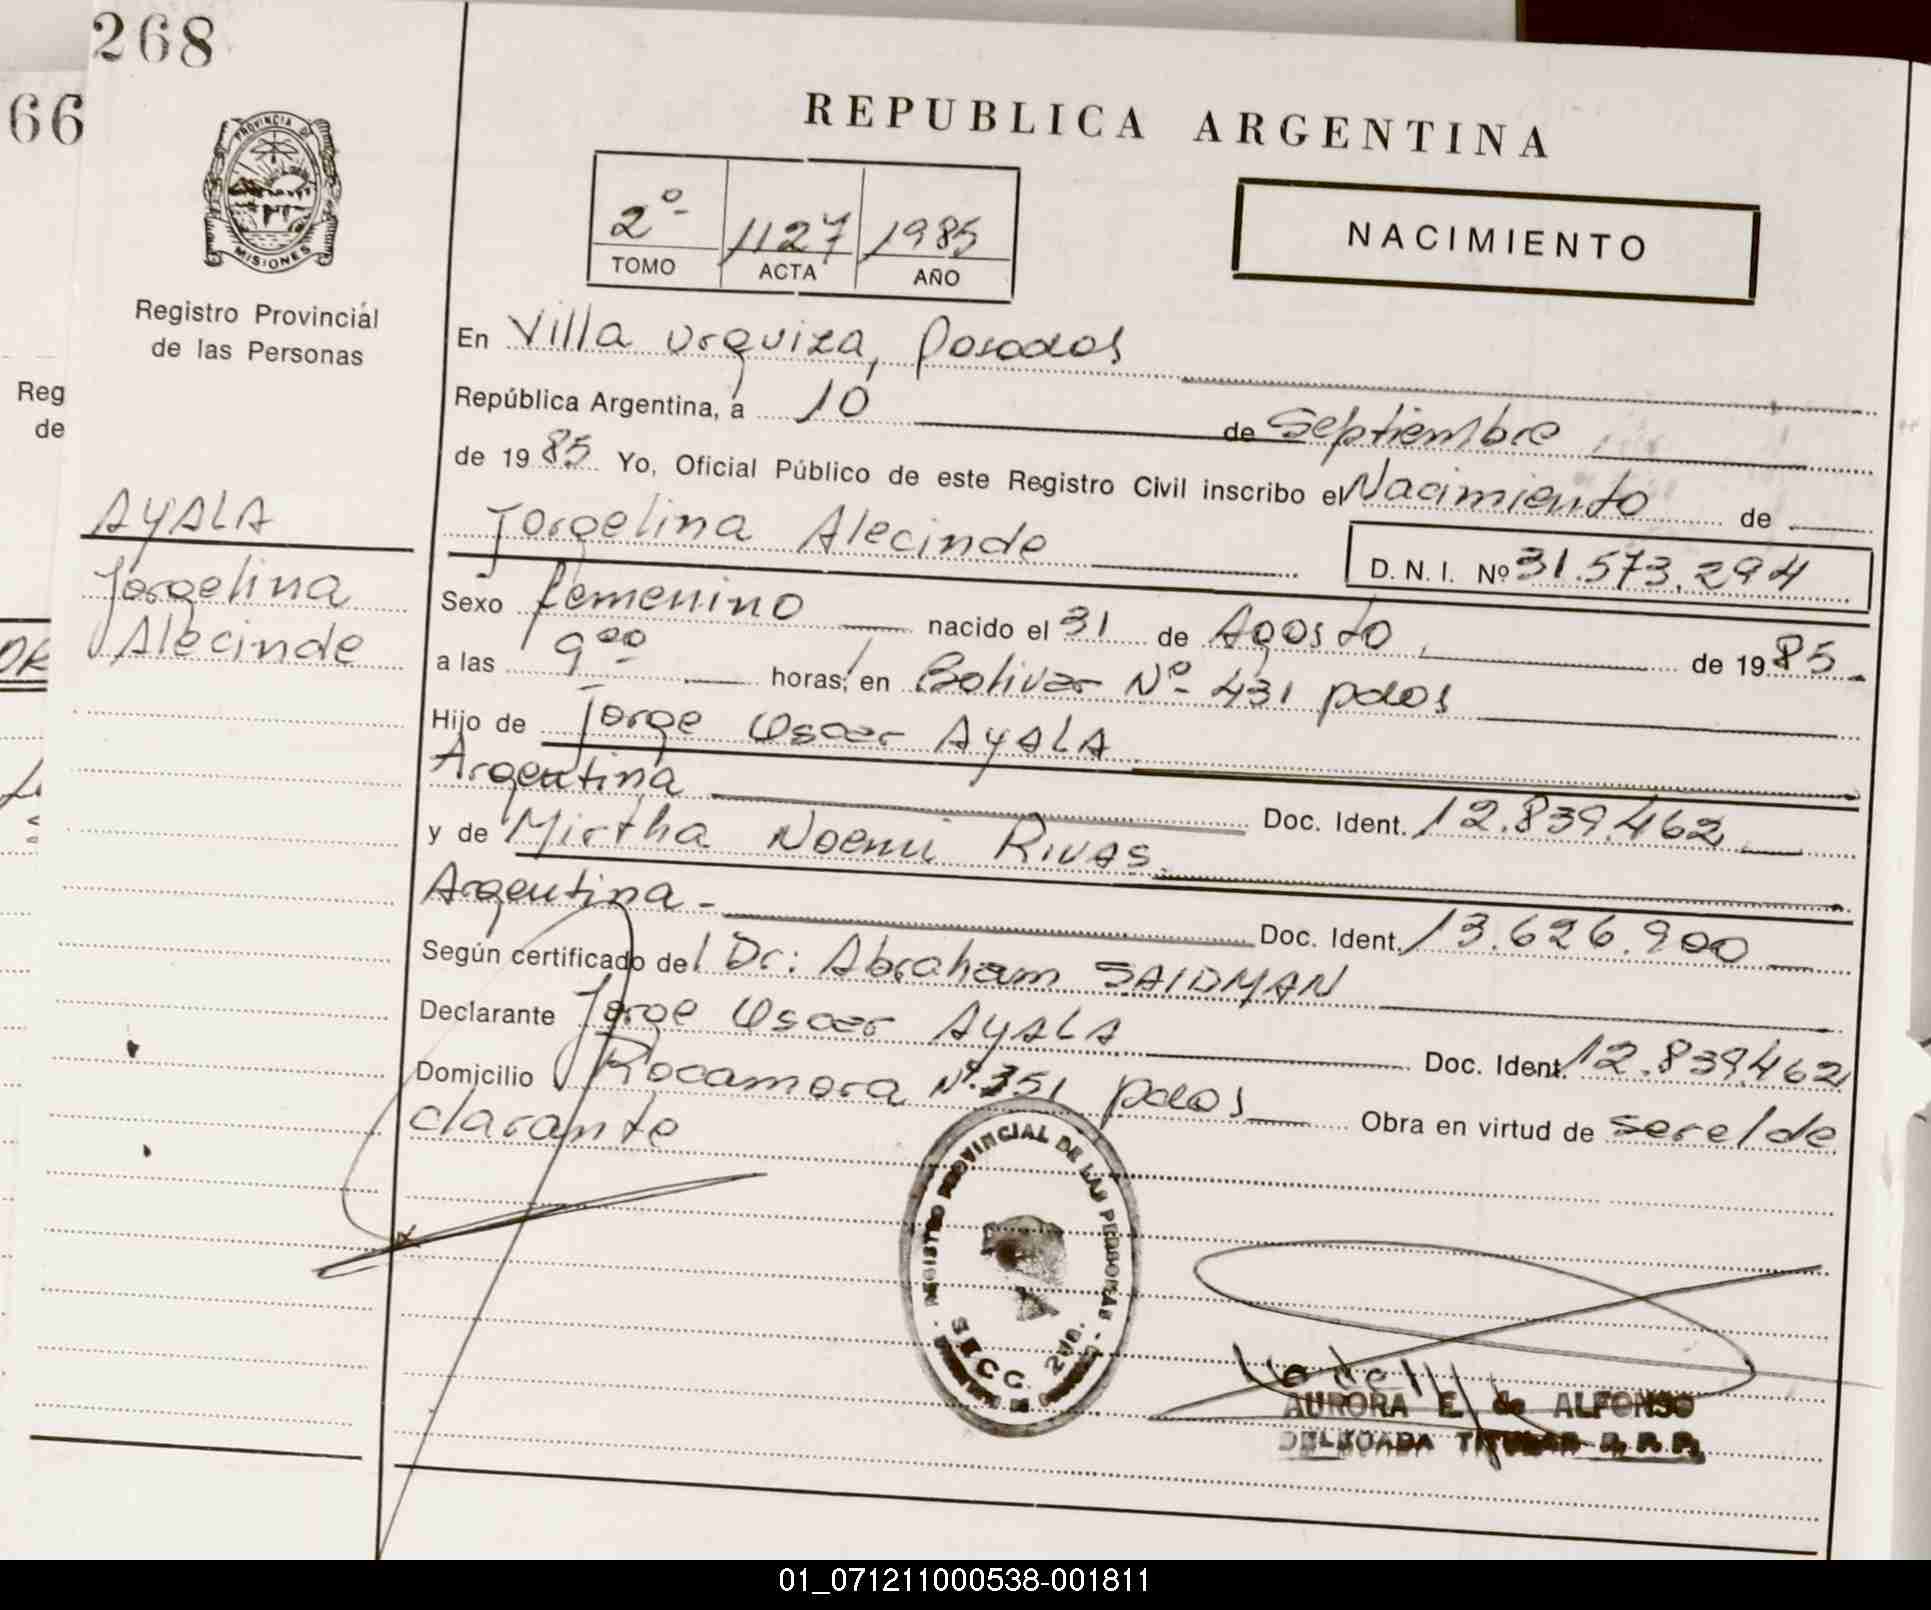 268
66
PROVINCIA DE
MISIONES
Registro Provincial
de las Personas
Reg
de
AYALA
Jorgelina
Alecinde
REPUBLICA ARGENTINA
2º 1127 1985
TOMO ACTA AÑO
NACIMIENTO
En Villa Urquiza, Posadas
República Argentina, a 10 de Septiembre
de 1985 Yo, Oficial Público de este Registro Civil inscribo el Nacimiento de
Jorgelina Alecinde D.N.I. Nº 31.573.294
Sexo femenino nacido el 31 de Agosto de 1985
a las 9 00 horas, en Bolivar Nº 431 pdas
Hijo de Jorge Oscar AYALA
Argentina Doc. Ident. 12.839.462
y de Mirtha Noemi Rivas
Argentina - Doc. Ident. 13.626.900
Según certificado del Dr: Abraham SAIDMAN
Declarante Jorge Oscar AYALA Doc. Ident. 12.839.462
Domicilio Rocamora Nº 351 pdas Obra en virtud de ser el de
clarante
REGISTRO PROVINCIAL DE LAS PERSONAS
AURORA E. de ALFONSO
DELEGADA TITULAR R.P.P.
01_071211000538-001811